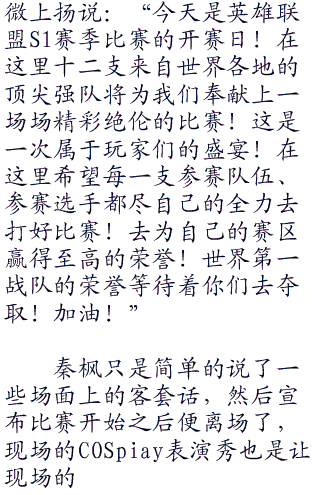 微上扬说：“今天是英雄联
盟S1赛季比赛的开赛日！在
这里十二支来自世界各地的
顶尖强队将为我们奉献上一
场场精彩绝伦的比赛！这是
一次属于玩家们的盛宴！在
这里希望每一支参赛队伍、
参赛选手都尽自己的全力去
打好比赛！去为自己的赛区
赢得至高的荣誉！世界第一
战队的荣誉等待着你们去夺
取！加油！”
秦枫只是简单的说了一
些场面上的客套话，然后宣
布比赛开始之后便离场了，
现场的COSpiay表演秀也是让
现场的